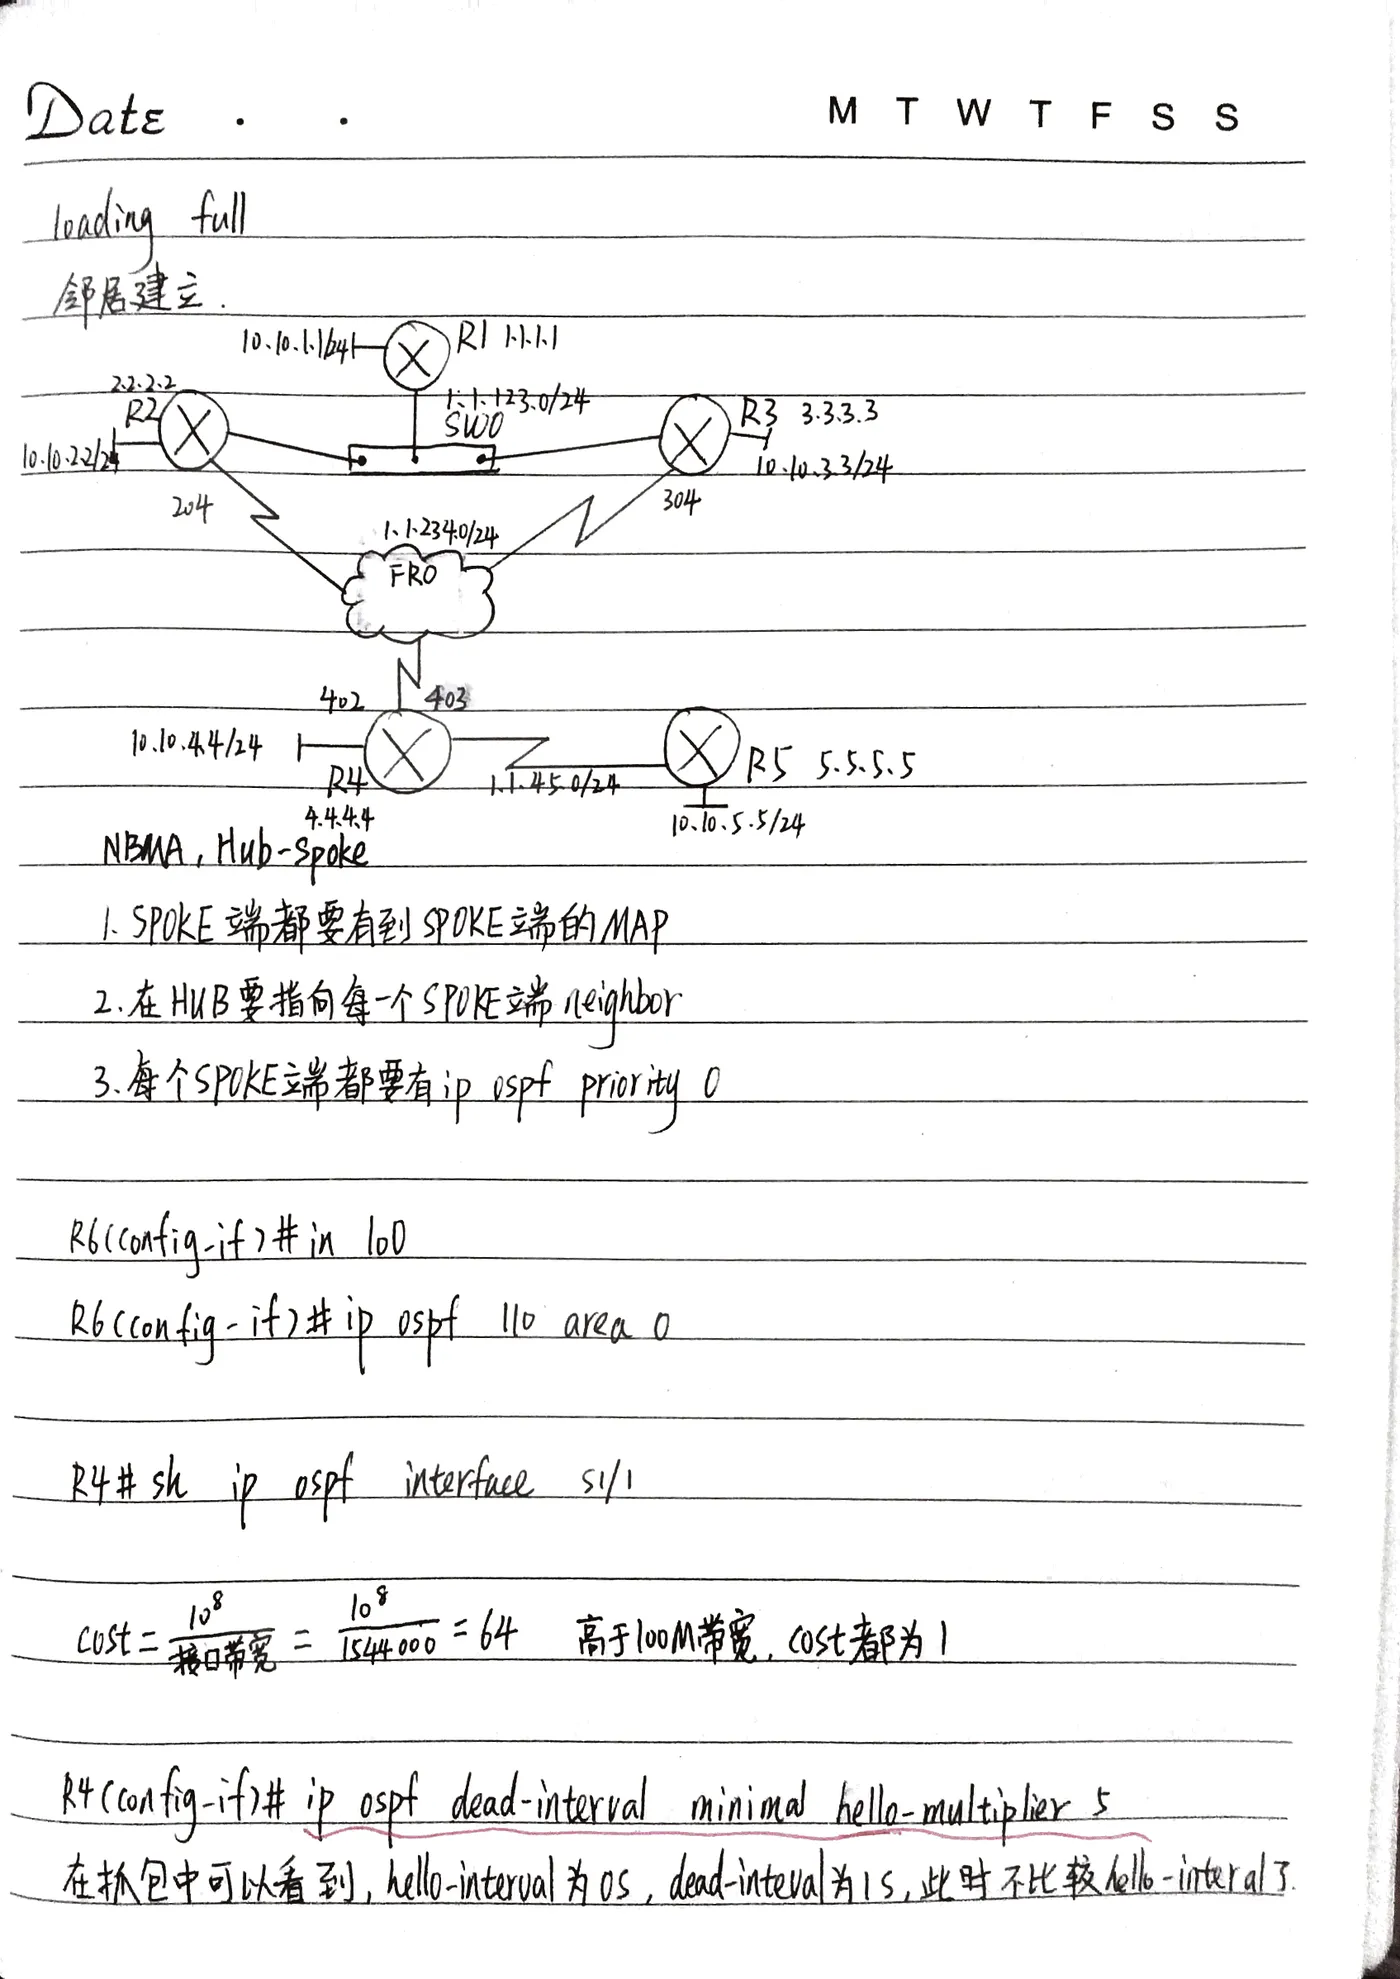 Date . .
M T W T F S S
loading full
邻居建立.
10.10.1.1/24
R1 1.1.1.1
2.2.2.2
R2
1.1.123.0/24
SW0
R3 3.3.3.3
10.10.2.2/24
10.10.3.3/24
204
304
1.1.234.0/24
FR0
402 403
10.10.4.4/24
R4
4.4.4.4
1.1.45.0/24
R5 5.5.5.5
10.10.5.5/24
NBMA, Hub-spoke
1. SPOKE端都要有到SPOKE端的MAP
2.在HUB要指向每一个SPOKE端neighbor
3.每个SPOKE端都要有ip ospf priority 0
R6(config-if)#in lo0
R6(config-if)#ip ospf 110 area 0
R4# sh ip ospf interface s1/1
cost = 10⁸/接口带宽 = 10⁸/1544000 = 64 高于100M带宽, cost都为1
R4(config-if)# ip ospf dead-interval minimal hello-multiplier 5
在抓包中可以看到, hello-interval为0s, dead-inteval为1s, 此时不比较hello-interal了.